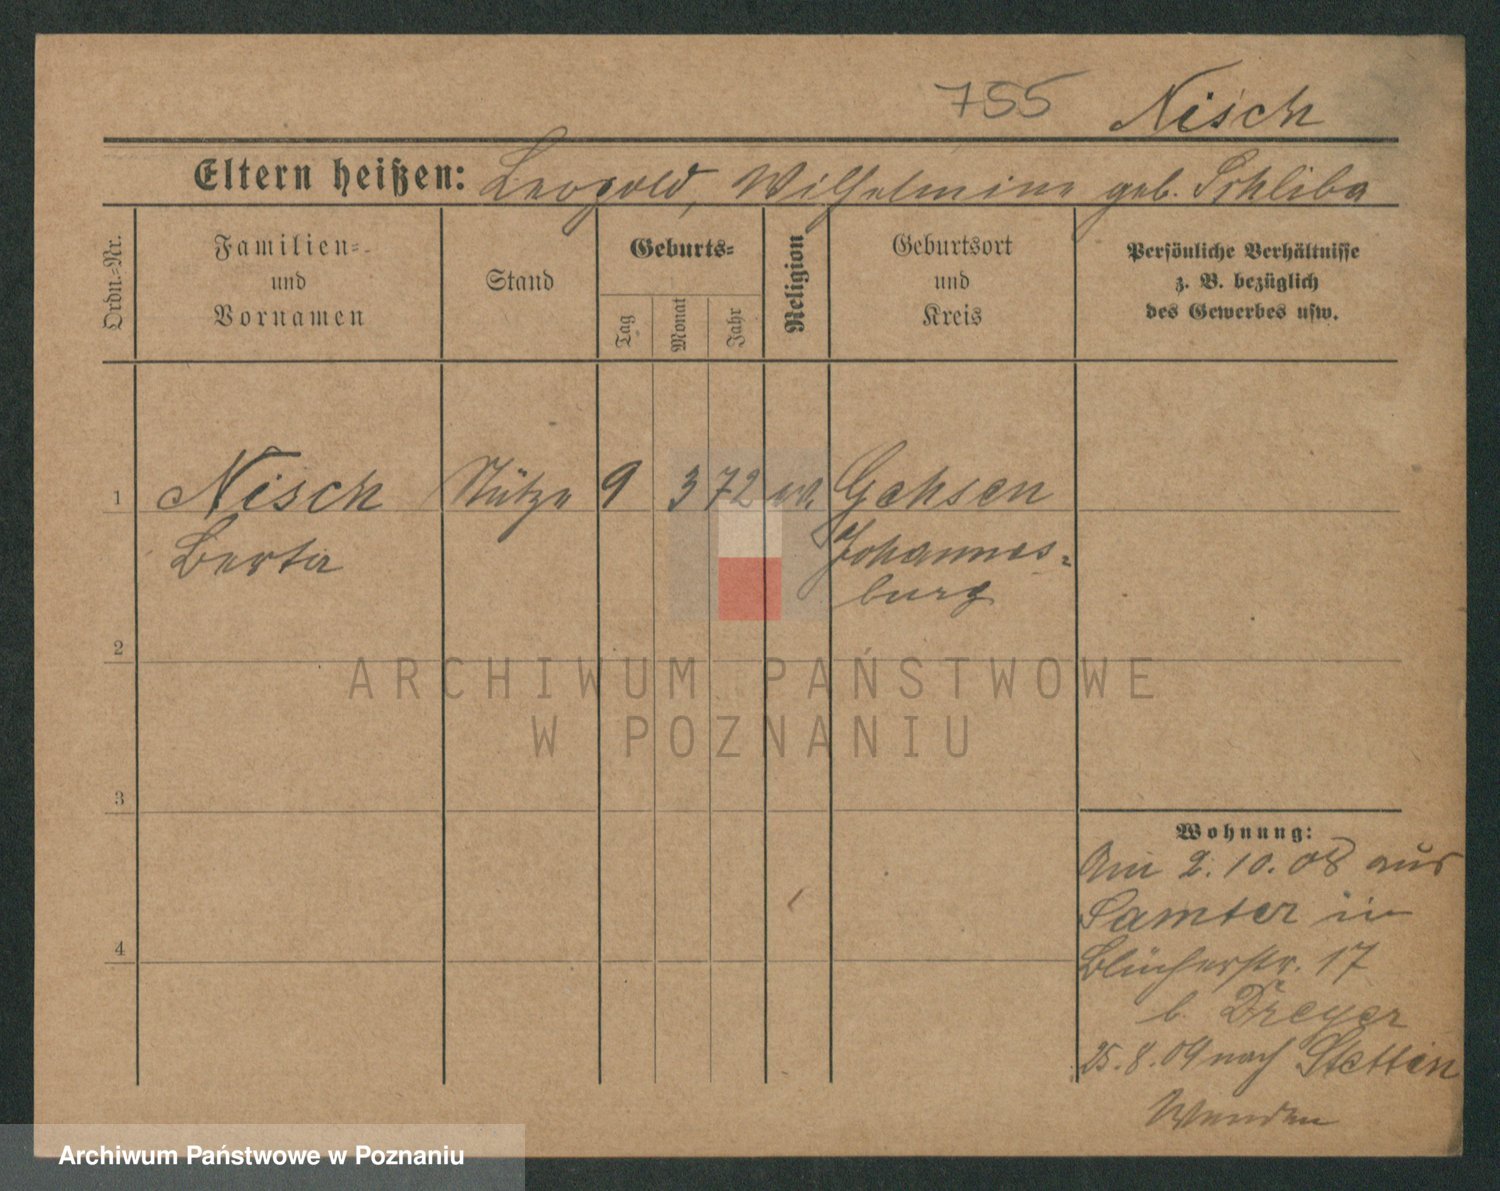 755 Nisch
Eltern heißen: Leopold, Wilhelmine geb. Schliba
Ordn.=Nr.
Familien=
und
Vornamen
Stand
Geburts=
Tag
Monat
Jahr
Religion
Geburtsort
und
Kreis
Persönliche Verhältnisse
z. B. bezüglich
des Gewerbes usw.
1 Nisch Stütze 9 3 72 ev. Gehsen
Berta Johannes=
burg
2
3
4
Wohnung:
Am 2.10.08 aus
Samter in
Blücherstr. 17
b. Dreyer
25.8.09 nach Stettin
Wenden
ARCHIWUM PAŃSTWOWE
W POZNANIU
Archiwum Państwowe w Poznaniu